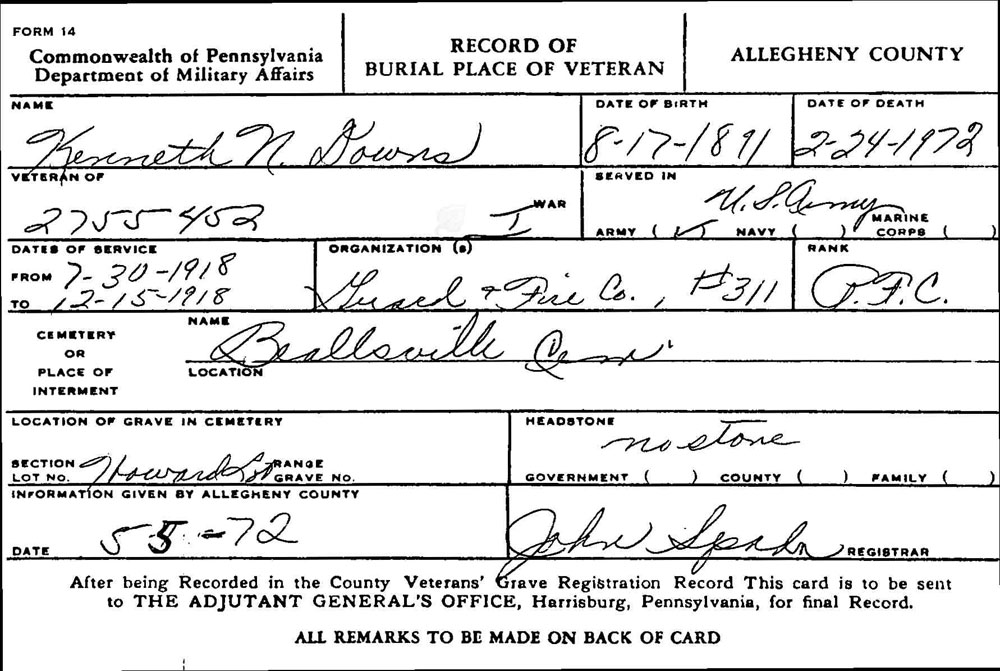 FORM 14
Commonwealth of Pennsylvania
Department of Military Affairs
RECORD OF
BURIAL PLACE OF VETERAN
ALLEGHENY COUNTY
NAME
Kenneth N. Downs
DATE OF BIRTH
8-17-1891
DATE OF DEATH
2-24-1972
VETERAN OF
2755452 I WAR
SERVED IN
U.S. Army
ARMY (✓) NAVY ( ) MARINE CORPS ( )
DATES OF SERVICE
FROM 7-30-1918
TO 12-15-1918
ORGANIZATION (s)
Guard & Fire Co., #311
RANK
P.F.C.
CEMETERY
OR
PLACE OF
INTERMENT
NAME
Beallsville Cem
LOCATION
LOCATION OF GRAVE IN CEMETERY
SECTION
LOT NO. Howard Lot
RANGE
GRAVE NO.
HEADSTONE
no stone
GOVERNMENT ( ) COUNTY ( ) FAMILY ( )
INFORMATION GIVEN BY ALLEGHENY COUNTY
DATE 5-5-72
John Spahr REGISTRAR
After being Recorded in the County Veterans' Grave Registration Record This card is to be sent
to THE ADJUTANT GENERAL'S OFFICE, Harrisburg, Pennsylvania, for final Record.
ALL REMARKS TO BE MADE ON BACK OF CARD